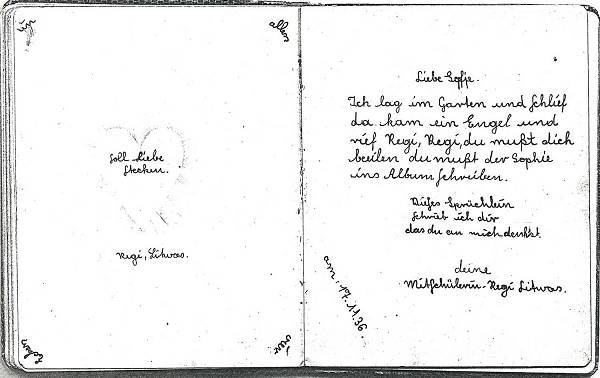 In
allen
Soll Liebe
Stecken.
Regi, Litwas.
Ecken
vier
Liebe Sofje.
Ich lag im Garten und Schlief
da kam ein Engel und
rief Regi, Regi, du mußt dich
beilen du mußt der Sophie
ins Album schreiben.
Dieses Sprüchlein
schrieb ich dir
das du an mich denkst.
deine
Mitschülerin. Regi Litwas.
am. 17.11.36.